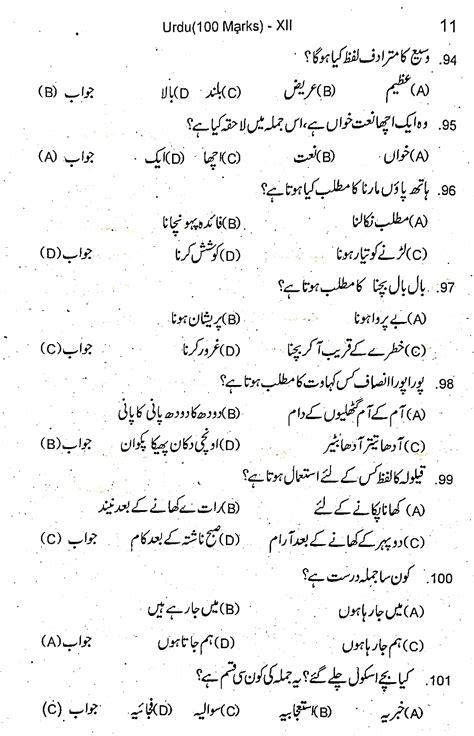 Urdu(100 Marks) - XII 11
94. وسیع کا مترادف لفظ کیا ہوگا؟
(A) عظیم (B) عریض (C) بلند (D) بالا جواب (B)
95. وہ ایک اچھا نعت خواں ہے، اس جملہ میں لاحقہ کیا ہے؟
(A) خواں (B) نعت (C) اچھا (D) ایک جواب (A)
96. ہاتھ پاؤں مارنا کا مطلب کیا ہوتا ہے؟
(A) مطلب نکالنا (B) فائدہ پہونچانا
(C) لڑنے کو تیار ہونا (D) کوشش کرنا جواب (D)
97. بال بال بچنا کا مطلب ہوتا ہے؟
(A) بے پروا ہونا (B) پریشان ہونا
(C) خطرے کے قریب آ کر بچنا (D) غرور کرنا جواب (C)
98. پورا پورا انصاف کس کہاوت کا مطلب ہوتا ہے؟
(A) آم کے آم گٹھلیوں کے دام (B) دودھ کا دودھ پانی کا پانی
(C) آدھا تیتر آدھا بٹیر (D) اونچی دکان پھیکا پکوان جواب (B)
99. قیلولہ کا لفظ کس کے لئے استعمال ہوتا ہے؟
(A) کھانا پکانے کے لئے (B) رات کے کھانے کے بعد نیند
(C) دوپہر کے کھانے کے بعد آرام (D) صبح ناشتہ کے بعد کام جواب (C)
100. کون سا جملہ درست ہے؟
(A) میں جا رہا ہوں (B) میں جا رہے ہیں
(C) ہم جا رہا ہوں (D) ہم جاتا ہوں جواب (A)
101. کیا بچے اسکول چلے گئے؟ یہ جملہ کی کون سی قسم ہے؟
(A) خبریہ (B) استعجابیہ (C) سوالیہ (D) فجائیہ جواب (C)